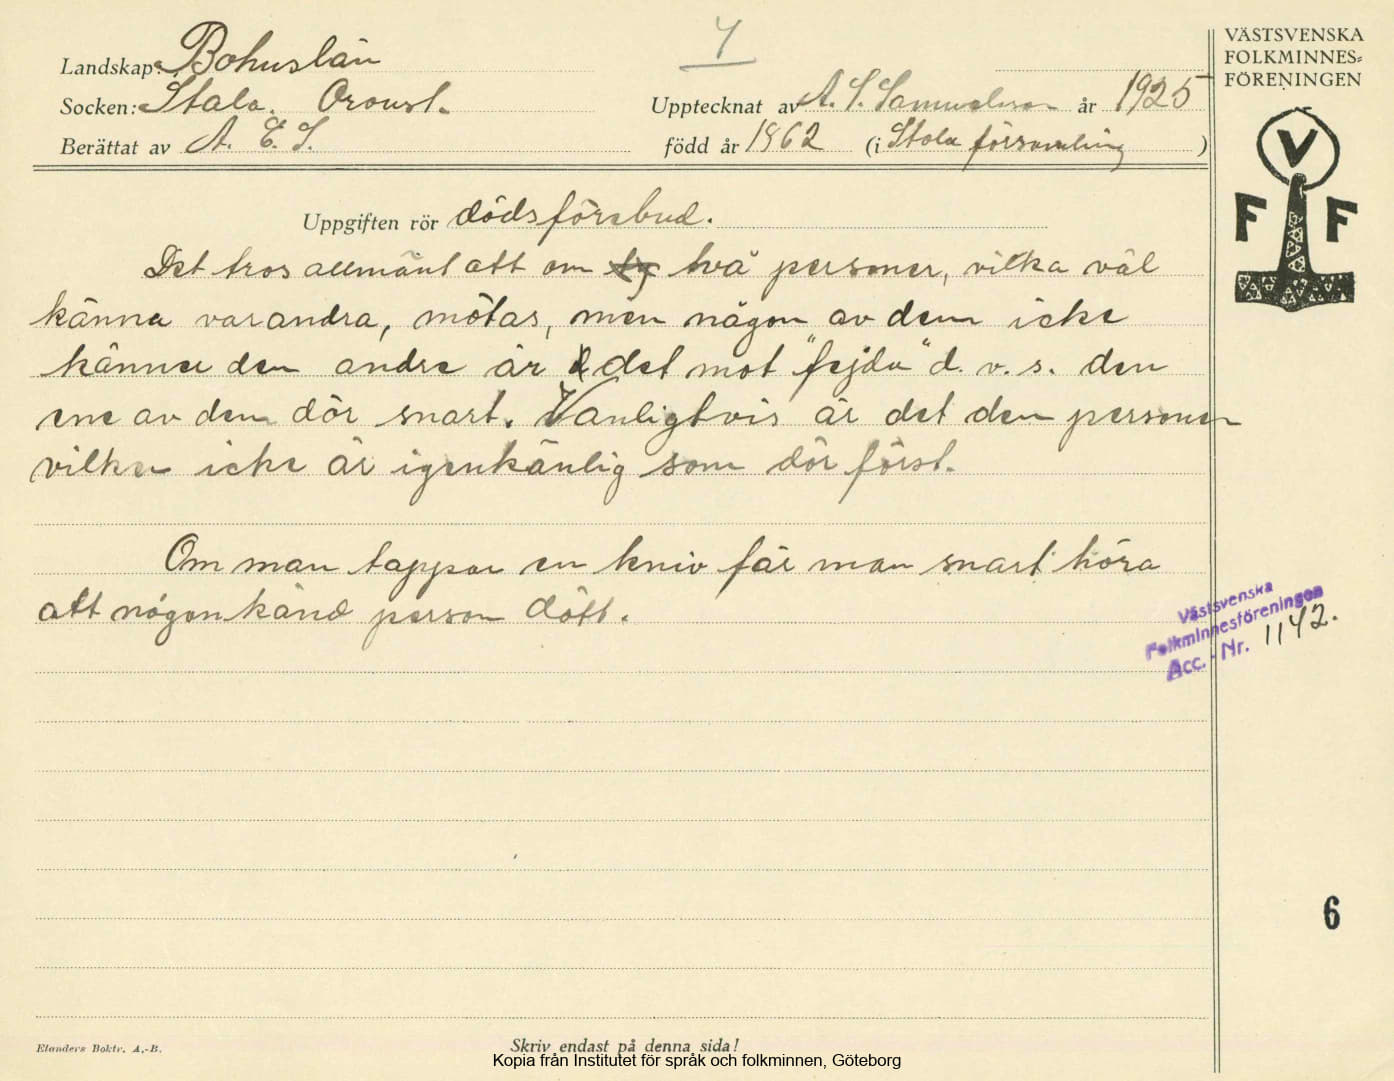 4
VÄSTSVENSKA
FOLKMINNES=
FÖRENINGEN
Landskap: Bohuslän
Socken: Stala. Oroust.
Upptecknat av A. S. Samuelsson år 1925
Berättat av A. E. S.
född år 1862 (i Stala församling)
V
F F
Uppgiften rör dödsförebud.
Det tros allmänt att om två personer, vilka väl
känna varandra, mötas, men någon av dem icke
känner den andre är det mot "fejda" d. v. s. den
ene av dem dör snart. Vanligtvis är det den personen
vilken icke är igenkänlig som dör först.
Om man tappar en kniv får man snart höra
att någon känd person dött.
Västsvenska
Folkminnesföreningen
Acc. - Nr. 1142.
6
Elanders Boktr. A.-B.
Skriv endast på denna sida!
Kopia från Institutet för språk och folkminnen, Göteborg